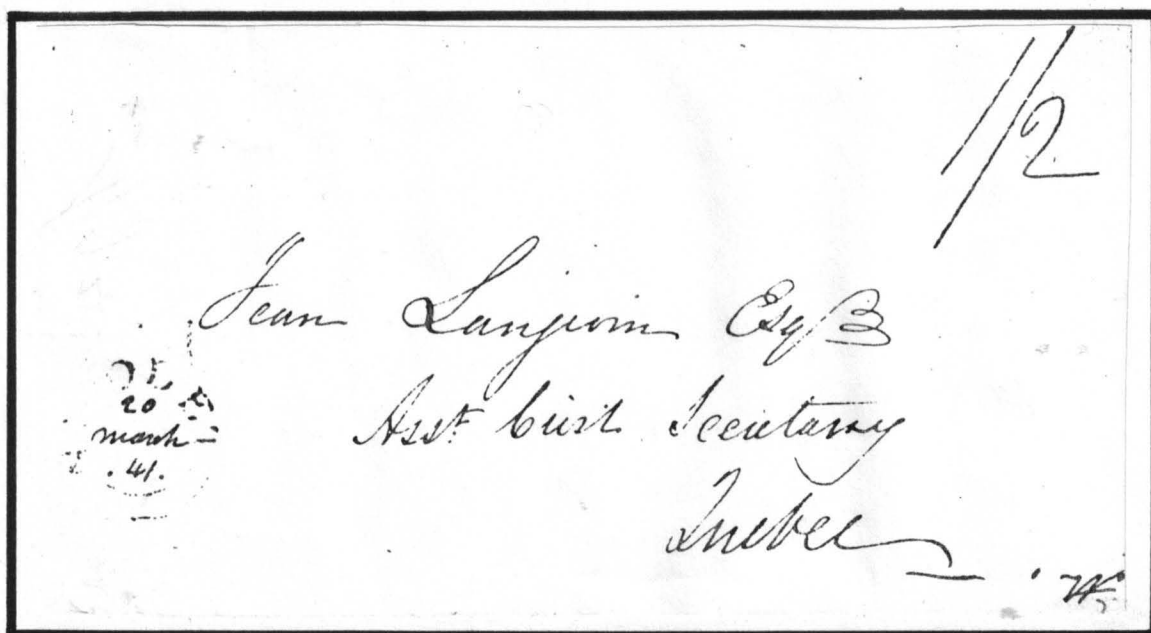 1/2
Jean Langevin Esqr
Asst Civil Secretary
Quebec
20
march
.41.